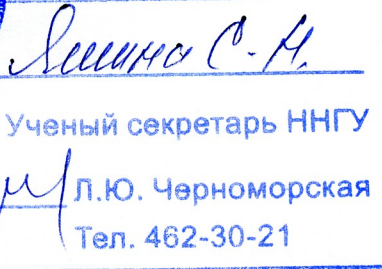 Яшина С. Н.
Ученый секретарь ННГУ
Л.Ю. Черноморская
Тел. 462-30-21